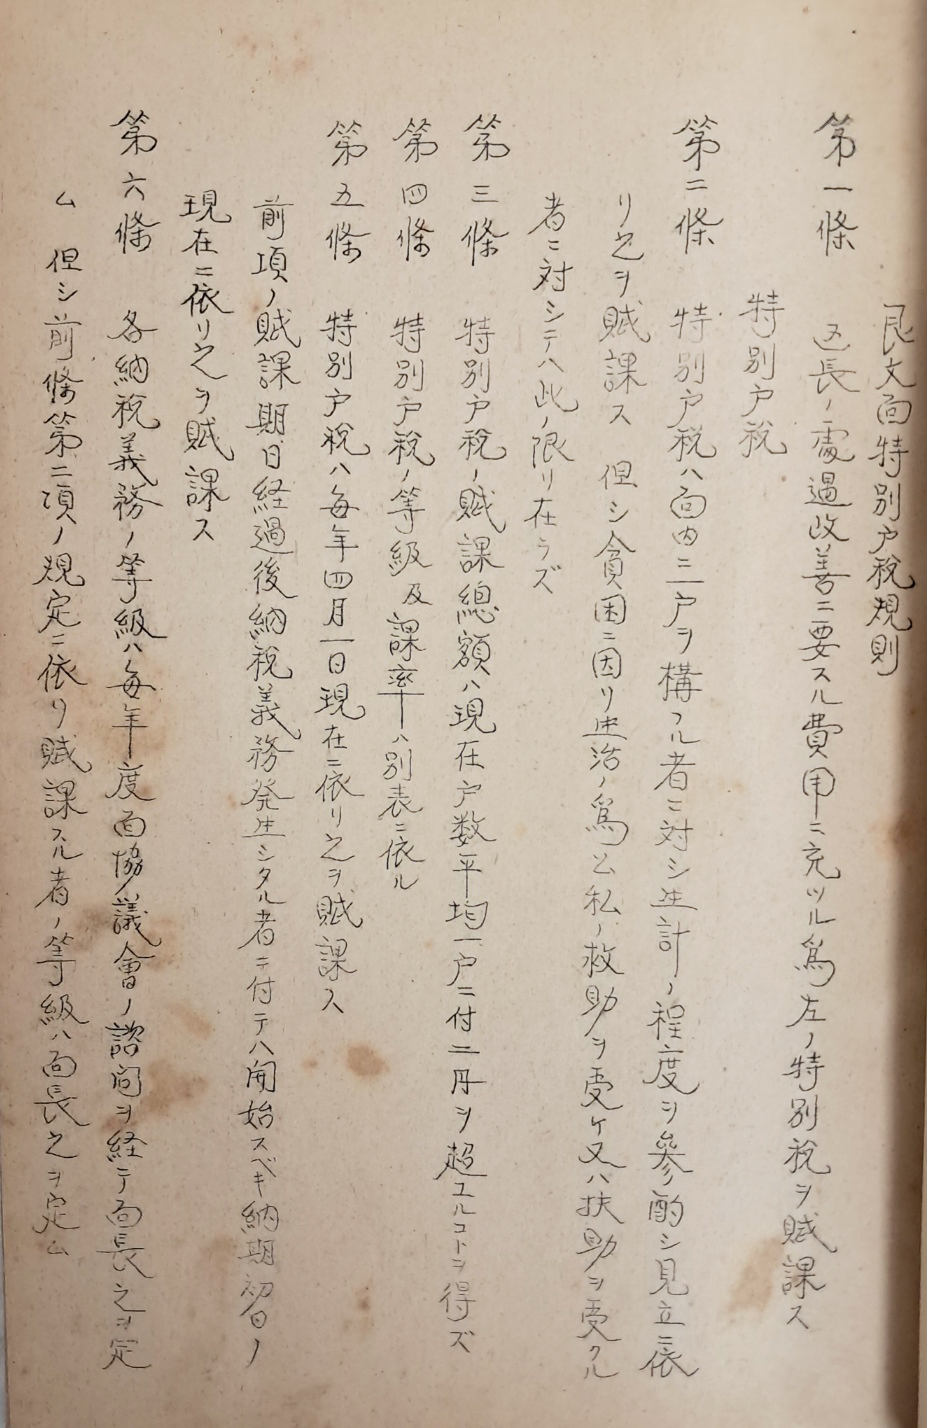 艮文面特別戸税規則
第一條　区長ノ處遇改善ニ要スル費用ニ充ツル為左ノ特別税ヲ賦課ス
特別戸税
第二條　特別戸税ハ面内ニ一戸ヲ構フル者ニ対シ生計ノ程度ヲ參酌シ見立ニ依
リ之ヲ賦課ス　但シ貧困ニ因リ生活ノ為公私ノ救助ヲ受ケ又ハ扶助ヲ受クル
者ニ対シテハ此ノ限リ在ラズ
第三條　特別戸税ノ賦課總額ハ現在戸数平均一戸ニ付二円ヲ超ユルコトヲ得ズ
第四條　特別戸税ノ等級及課率ハ別表ニ依ル
第五條　特別戸税ハ毎年四月一日現在ニ依リ之ヲ賦課ス
前項ノ賦課期日経過後納税義務発生シタル者ニ付テハ開始スベキ納期初日ノ
現在ニ依リ之ヲ賦課ス
第六條　各納税義務ノ等級ハ毎年度面協議會ノ諮問ヲ経テ面長之ヲ定
ム　但シ前條第二項ノ規定ニ依リ賦課スル者ノ等級ハ面長之ヲ定ム